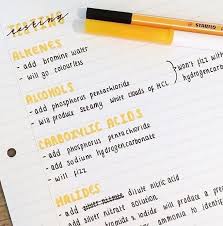 testing
TESTING
STABILO
ALKENES
- add bromine water
- will go colourless
ALCOHOLS
- add phosphorus pentachloride
- will produce steamy white clouds of HCl
won't fizz with
hydrogencarbonate
CARBOXYLIC ACIDS
- add phosphorus pentachloride
- add sodium hydrogencarbonate
- will fizz
HALIDES
- add dilute nitric acid
- add silver nitrate solution
bromide & iodide will produce
ammonia to identify